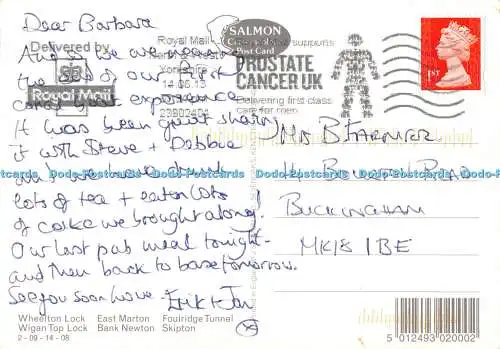 Dear Barbara
And so we are nearing
the end of our first
canal boat experience
It was been great sharing
it with Steve + Debbie
and we have drunk
lots of tea + eaten lots
of cake we brought along!
Our last pub meal tonight -
and then back to base tomorrow.
See you soon love -
Wheelton Lock East Marton Foulridge Tunnel
Wigan Top Lock Bank Newton Skipton
2 - 09 - 14 - 08
Delivered by
Royal Mail
Royal Mail
Yorkshire
14-06-13
23802451
SALMON
Post Card
supports
PROSTATE
CANCER UK
Delivering first class
care for men
1ST
B FARMER
ROAD
BUCKINGHAM
MK18 1BE
Dodo-Postcards Dodo-Postcards Dodo-Postcards Dodo-Postcards Dodo-Postcards
5 012493 020002